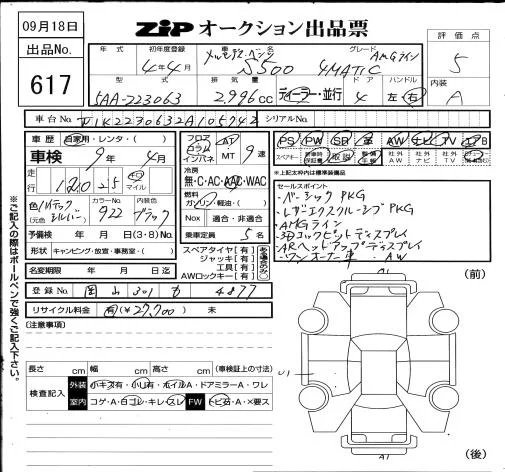 09月18日
ZIP オークション出品票
出品No.
617
年式
初年度登録
4年4月
車名
メルセデス・ベンツ
S500
グレード
AMGライン
4MATIC
評価点
5
型式
5AA-223063
排気量
2996cc
ドア
ディーラー・並行
4
ハンドル
左・右
内装
A
車台No.
W1K2230632A105742
シリアルNo.
車歴
自家用・レンタ・( )
車検 9年 4月
走行
12025
km
マイル
色
ハイテック
(元色 シルバー)
カラーNo.
922
内装色
ブラック
予備検 年 月 日 (3・8) No.
形状 キャンピング・放宣・事務室・( )
名変期限 年 月 日迄
フロア
コラム
インパネ
AT
MT
9速
冷房
無・C・AC・AAC・WAC
燃料
ガソリン・軽油・( )
Nox 適合・非適合
乗車定員 5名
スペアタイヤ[有]
ジャッキ[有]
工具[有]
AWロックキー[有]
PS PW SR 革 AW ナビ TV エアB
スペアキー
保証書
取説
記録簿
手帳
社外 AW
社外 ナビ
社外 TV
※上記太枠内は標準装備品
セールスポイント
・ベーシックPKG
・レザーエクスクルーシブPKG
・AMGライン
・3Dコックピットディスプレイ
・ARヘッドアップディスプレイ
・ワンオーナー車 ・AW
登録No. 岡山 301 も 4877
リサイクル料金 有(¥27,700) 未
(注意事項)
長さ cm 幅 cm 高さ cm (車検証上の寸法)
検査記入
外装 小キズ有・小凹有・ホイルA・ドアミラーA・ワレ
室内 コゲ・A・ヨゴレ・キレ・スレ FW トビ石・A・×要ス
※ご記入の際はボールペンで強くご記入下さい。
(前)
A1
U1
A1
(後)